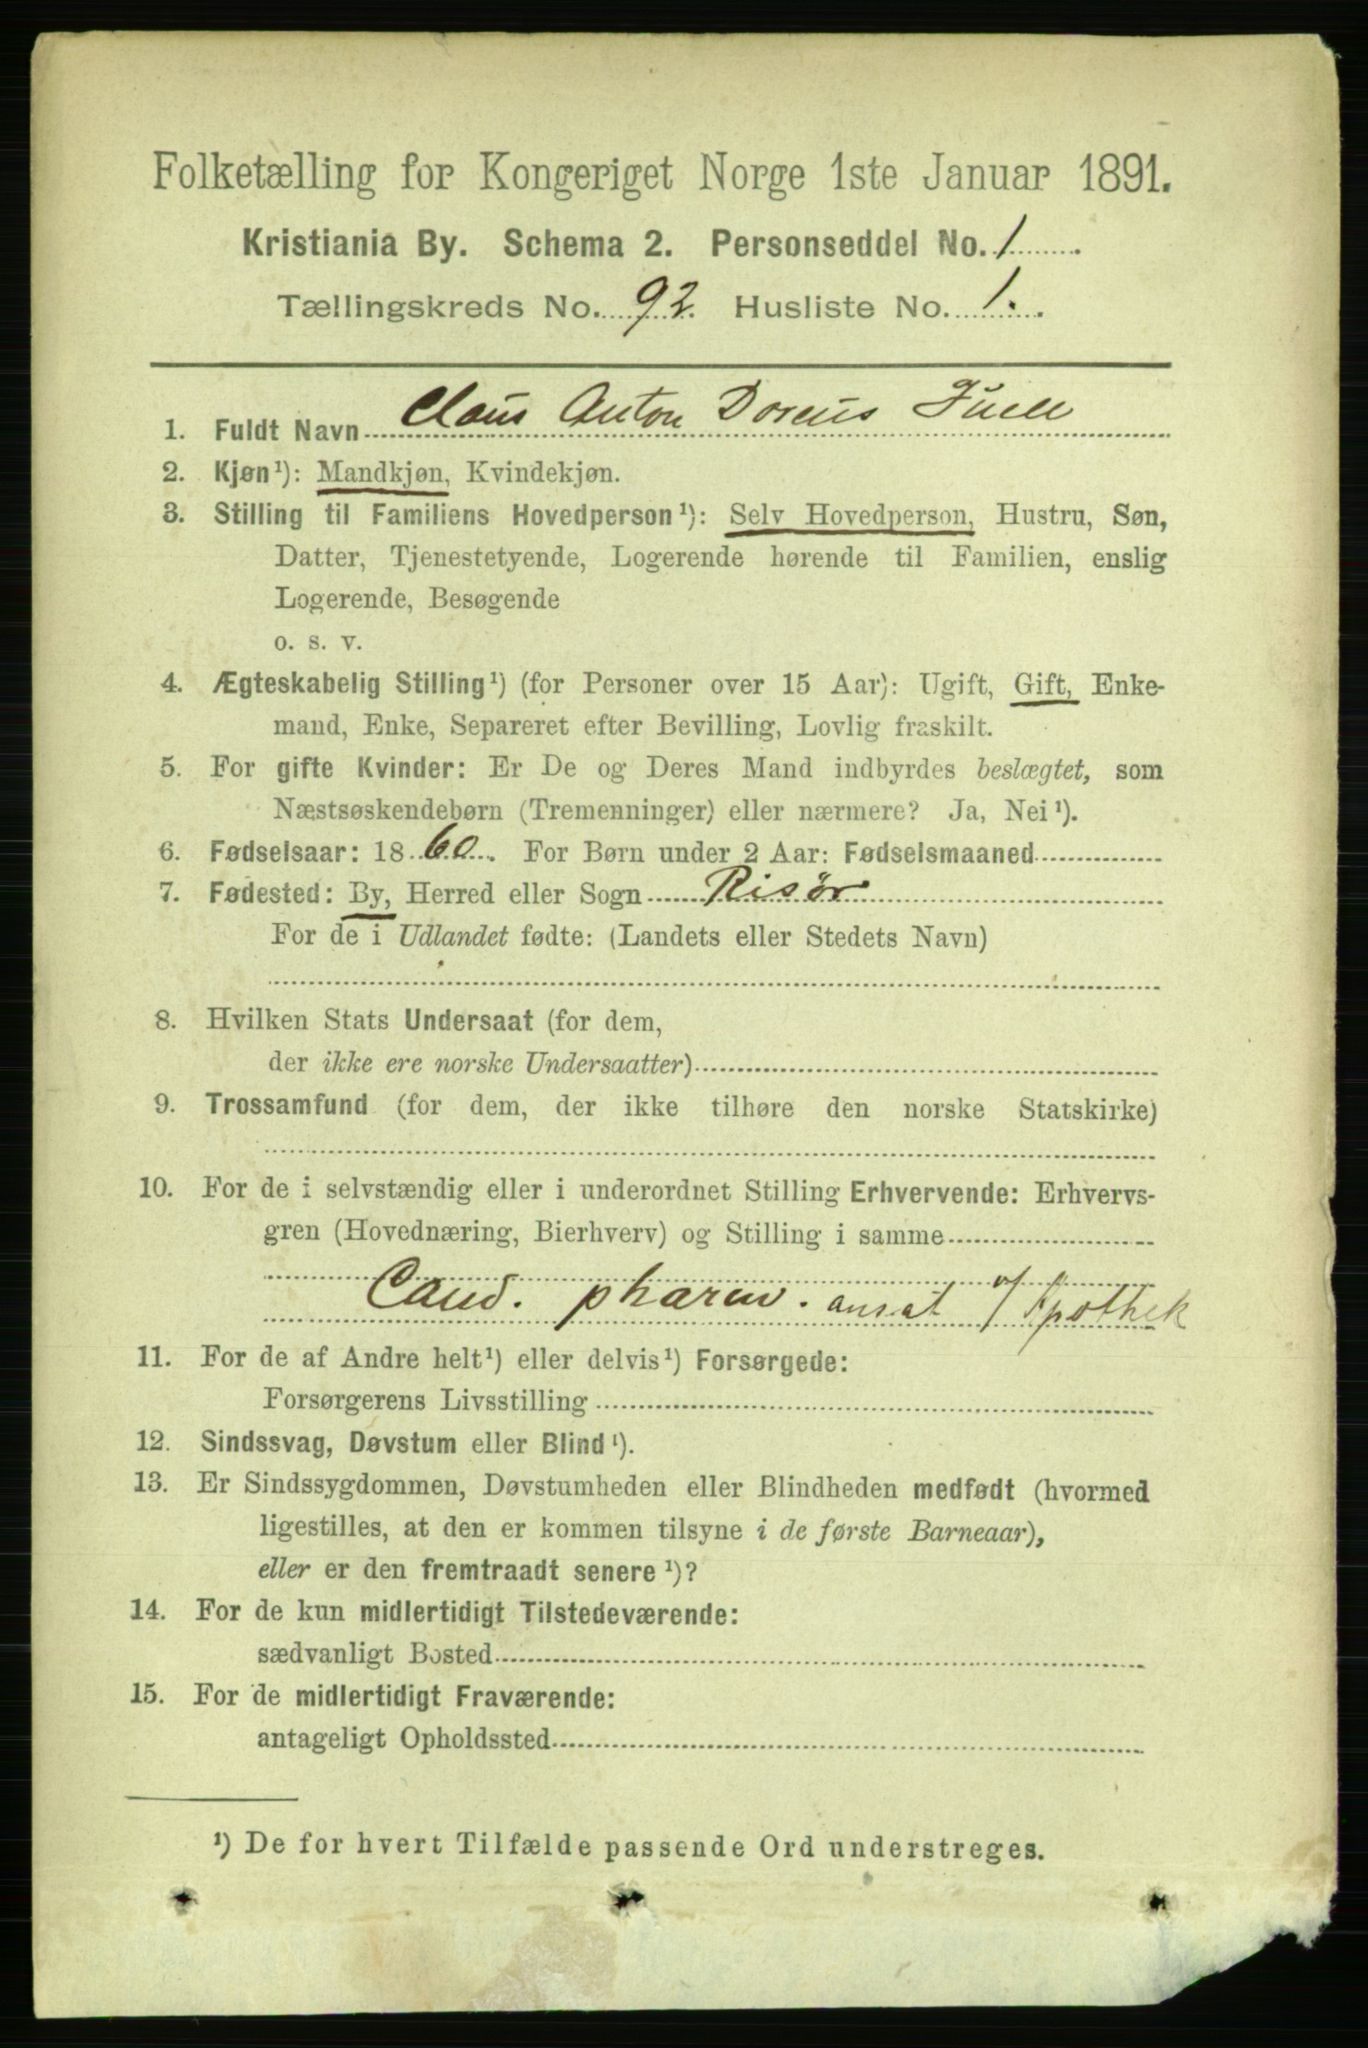 Folketælling for Kongeriget Norge 1ste Januar 1891.
Kristiania By. Schema 2. Personseddel No. 1
Tællingskreds No. 92. Husliste No. 1.
1. Fuldt Navn Claus Anton Juell
2. Kjøn¹): Mandkjøn, Kvindekjøn.
3. Stilling til Familiens Hovedperson¹): Selv Hovedperson, Hustru, Søn,
Datter, Tjenestetyende, Logerende hørende til Familien, enslig
Logerende, Besøgende
o. s. v.
4. Ægteskabelig Stilling¹) (for Personer over 15 Aar): Ugift, Gift, Enke-
mand, Enke, Separeret efter Bevilling, Lovlig fraskilt.
5. For gifte Kvinder: Er De og Deres Mand indbyrdes beslægtet, som
Næstsøskendebørn (Tremenninger) eller nærmere? Ja, Nei¹).
6. Fødselsaar: 1860. For Børn under 2 Aar: Fødselsmaaned
7. Fødested: By, Herred eller Sogn Risör
For de i Udlandet fødte: (Landets eller Stedets Navn)
8. Hvilken Stats Undersaat (for dem,
der ikke ere norske Undersaatter)
9. Trossamfund (for dem, der ikke tilhøre den norske Statskirke)
10. For de i selvstændig eller i underordnet Stilling Erhvervende: Erhvervs-
gren (Hovednæring, Bierhverv) og Stilling i samme
Cand. pharm. ansat v/ Apothek
11. For de af Andre helt¹) eller delvis¹) Forsørgede:
Forsørgerens Livsstilling
12. Sindssvag, Døvstum eller Blind¹).
13. Er Sindssygdommen, Døvstumheden eller Blindheden medfødt (hvormed
ligestilles, at den er kommen tilsyne i de første Barneaar),
eller er den fremtraadt senere¹)?
14. For de kun midlertidigt Tilstedeværende:
sædvanligt Bosted
15. For de midlertidigt Fraværende:
antageligt Opholdssted
¹) De for hvert Tilfælde passende Ord understreges.